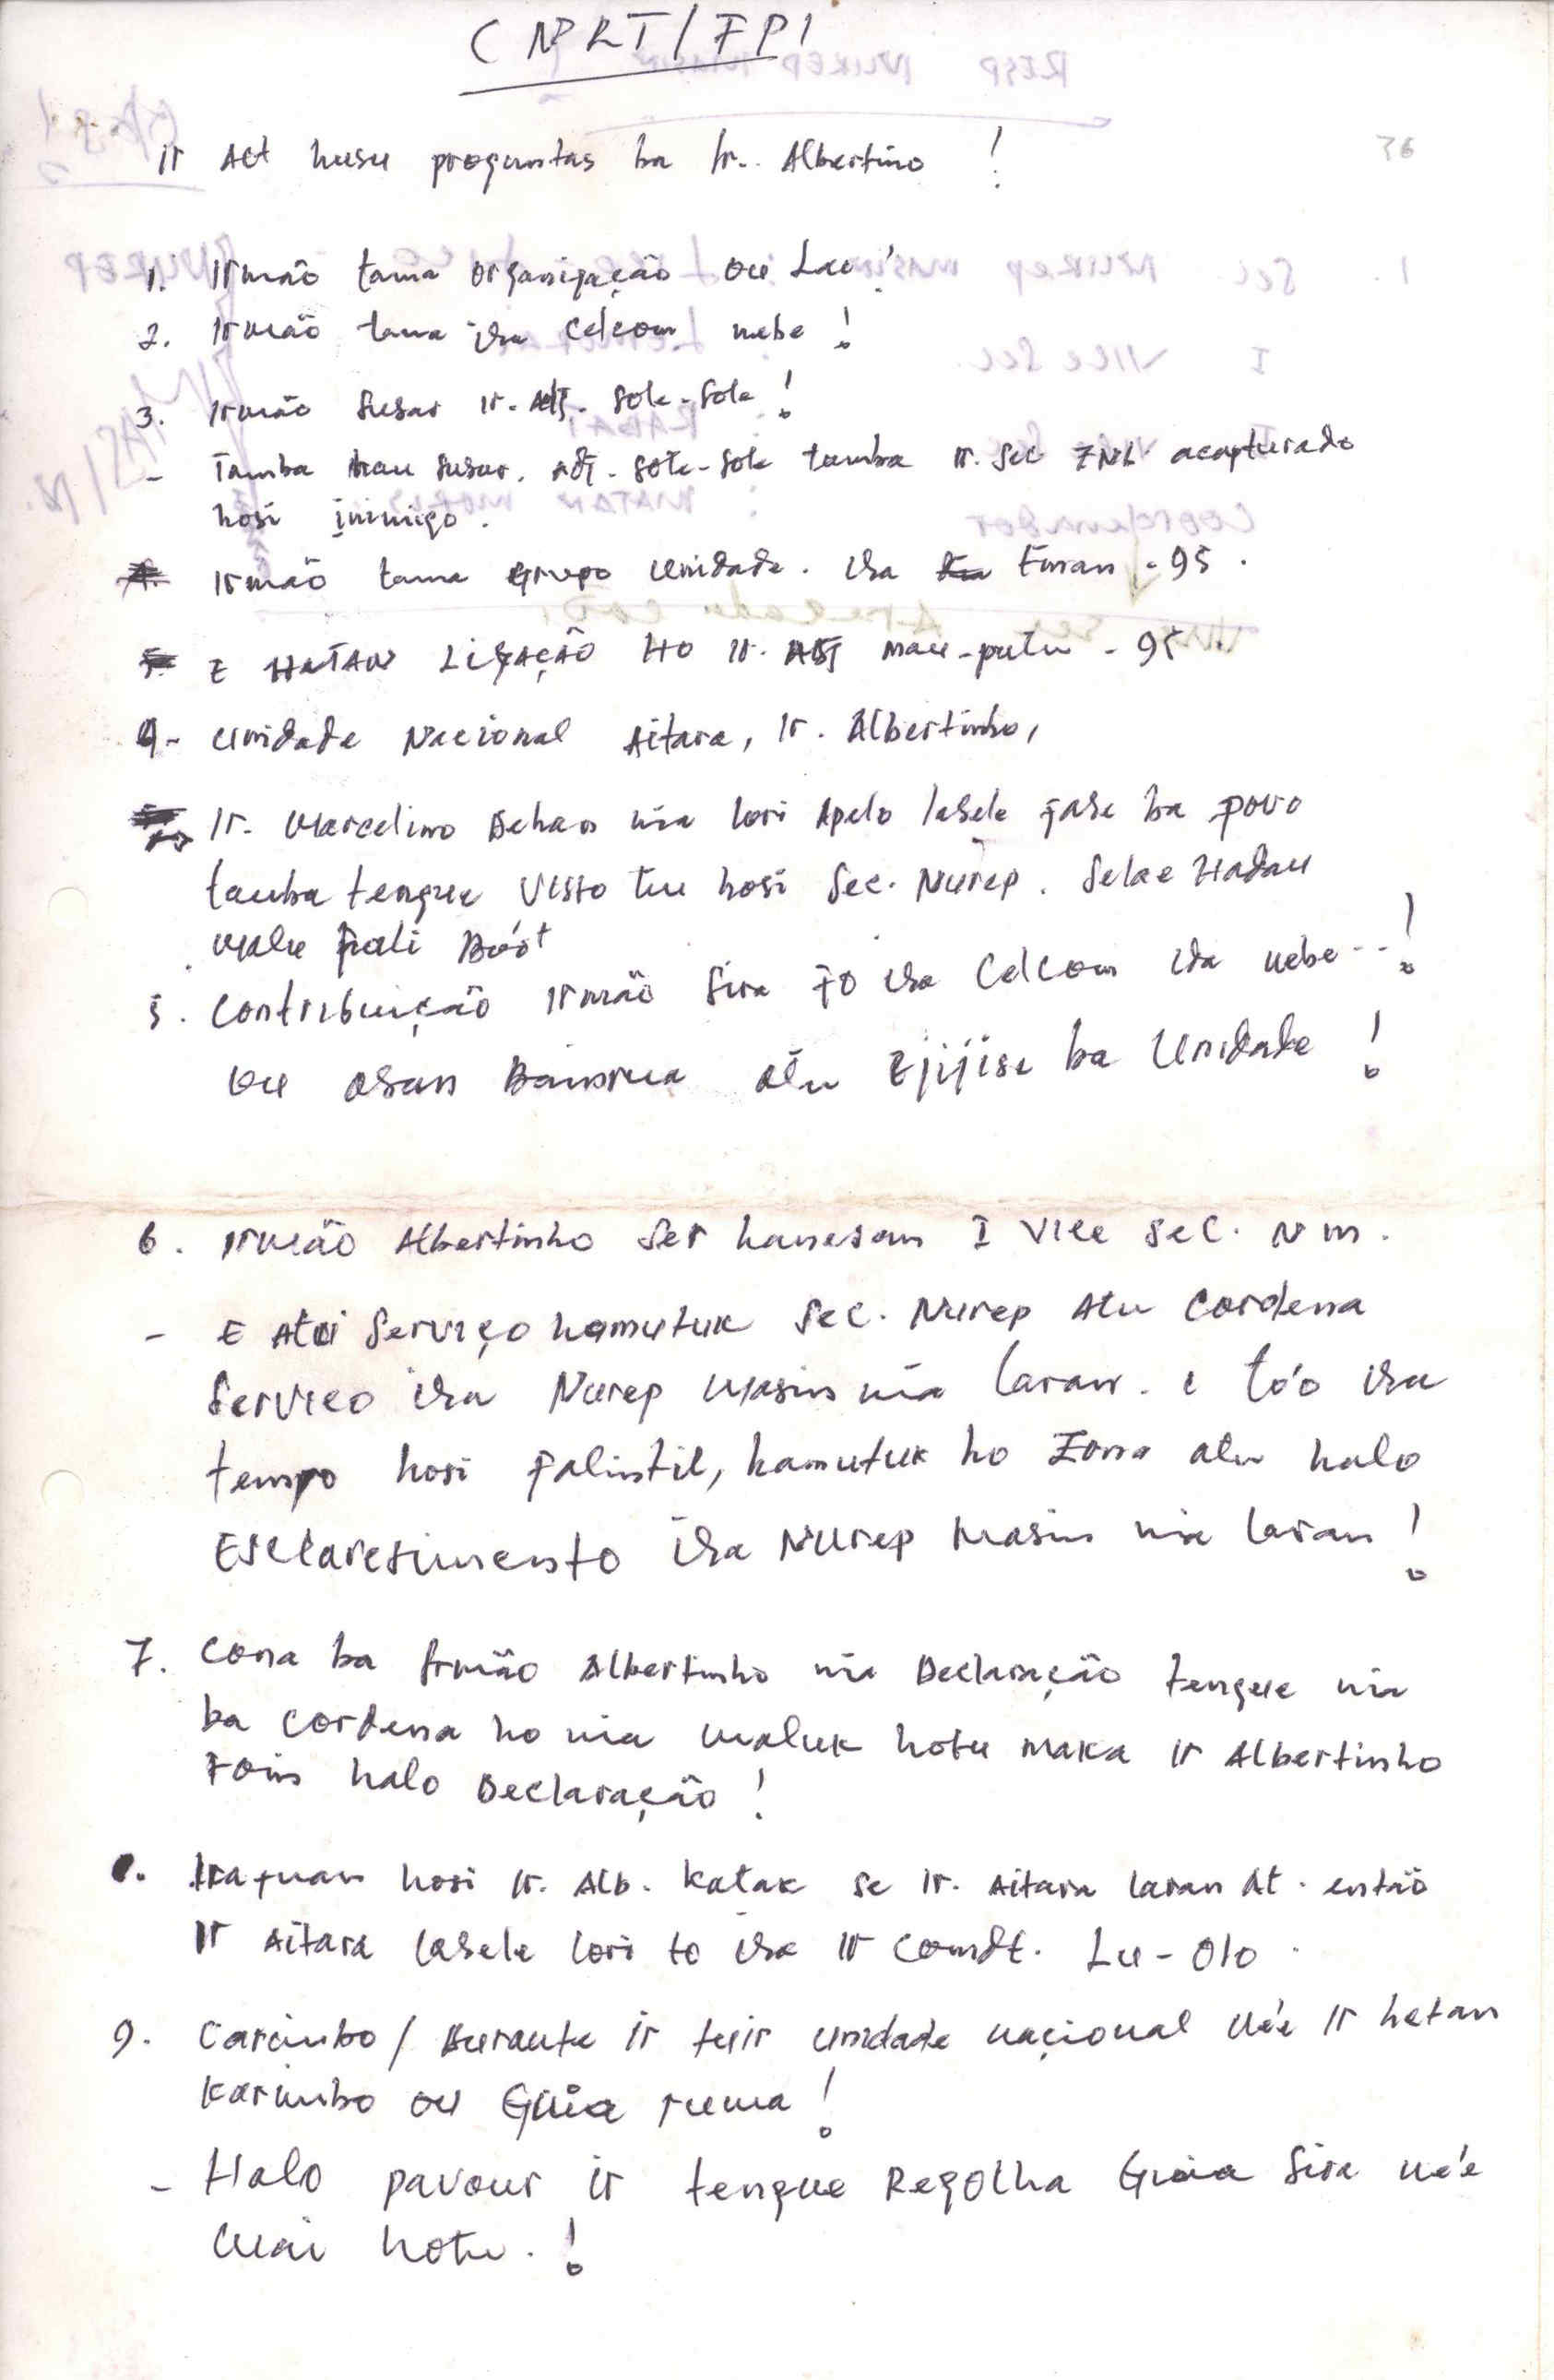 CNRT/FPI
36
Ir Act husu preguntas ba Ir. Albertino!
1. Irmão tama organização ou Lae!
2. Irmão tama iha Celcom nebe!
3. Irmão Susar Ir. Adj. Sole-Sole!
- Tamba hau susar. Adj. Sole-Sole tamba Ir. Sec ZNL acapturado
hosi inimigo.
Irmão tama Grupo Unidade. iha Furan - 95.
E HETAN LIGAÇÃO HO Ir. ADJ Mau-putu - 95.
4- Unidade Nacional Aitara, Ir. Albertinho,
Ir. Marcelino Dehan nia lori Apelo lasele fase ba povo
tamba tengue Visto tu hosi Sec. Nurep. Selae Hadau
malu fali Bóot
5. Contribuição Irmão Sira FO iha Celcom ida nebe--!
ou osan Bainrua atu Ejijise ba Unidade!
6. Irmão Albertinho Ser hanesan I Vice Sec. Nm.
- E Atoi Serviço hamutuk Sec. Nurep Atu Cordena
Servico iha Nurep Masin nia laran. e tó'o iha
tempo hosi falintil, hamutuk ho Zona atu halo
Esclaresimento iha Nurep Masin nia laran!
7. Cona ba Irmão Albertinho nia Declaração tengue nia
ba cordena ho nia maluk hotu maka Ir Albertinho
Foin halo Declaração!
8. Irafuan hosi Ir. Alb. Katak se Ir. Aitara laran At. então
Ir Aitara lasele lori to iha Ir Comdt. Lu-Olo.
9. Carimbo / Durante Ir tuir unidade naçional né'e Ir hetan
Karimbo ou Guia ruma!
- Halo pavour ir tengue Regolha Guia Sira né'e
mai hotu.!